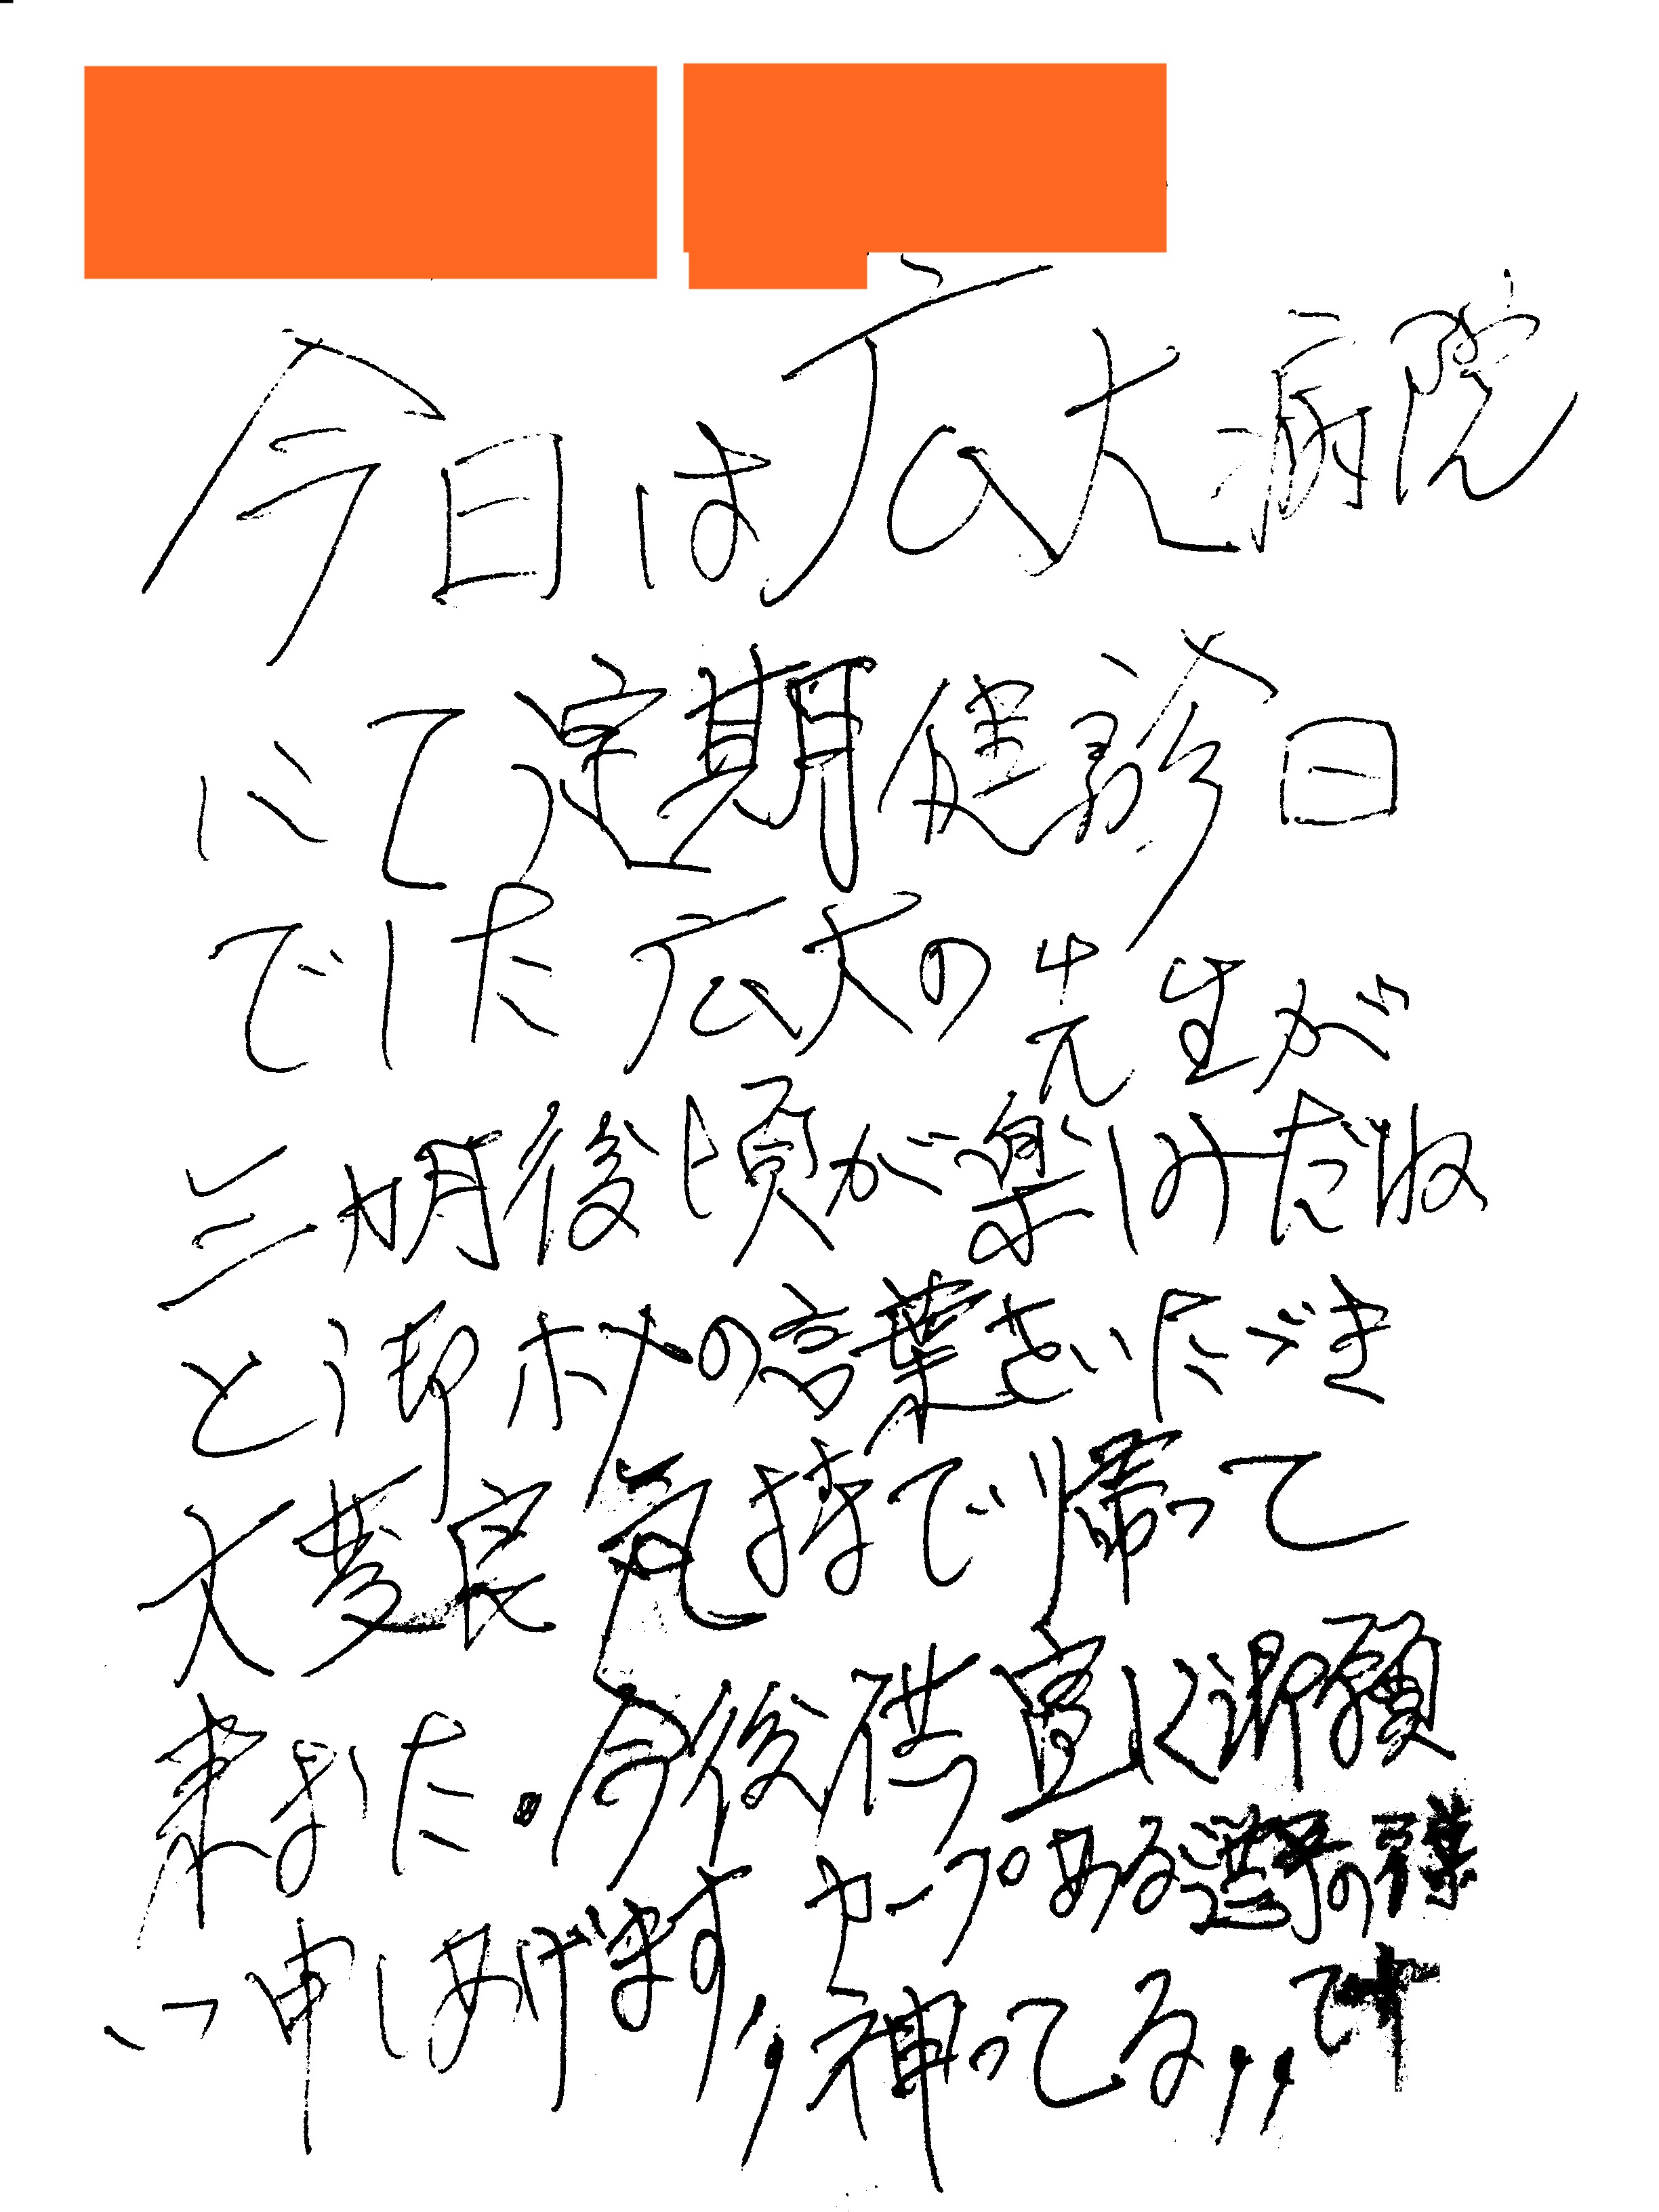 今日は広大病院
にて定期健診日
でした広大の先生が
三カ月後頃が楽しみだね
と御礼の言葉をいただき
大変良気持で帰って
来ました.今後供宜しく御願
い申しあげます,カープある選手の様
,神ってる,,です